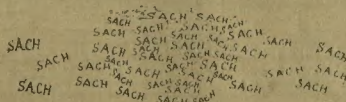 SACH SACH
SACH SACH SACH SACH
SACH SACH SACH SACH SACH
SACH SACH SACH SACH SACH SACH
SACH SACH SACH SACH SACH SACH
SACH SACH SACH SACH SACH SACH
SACH SACH SACH SACH SACH
SACH SACH SACH SACH